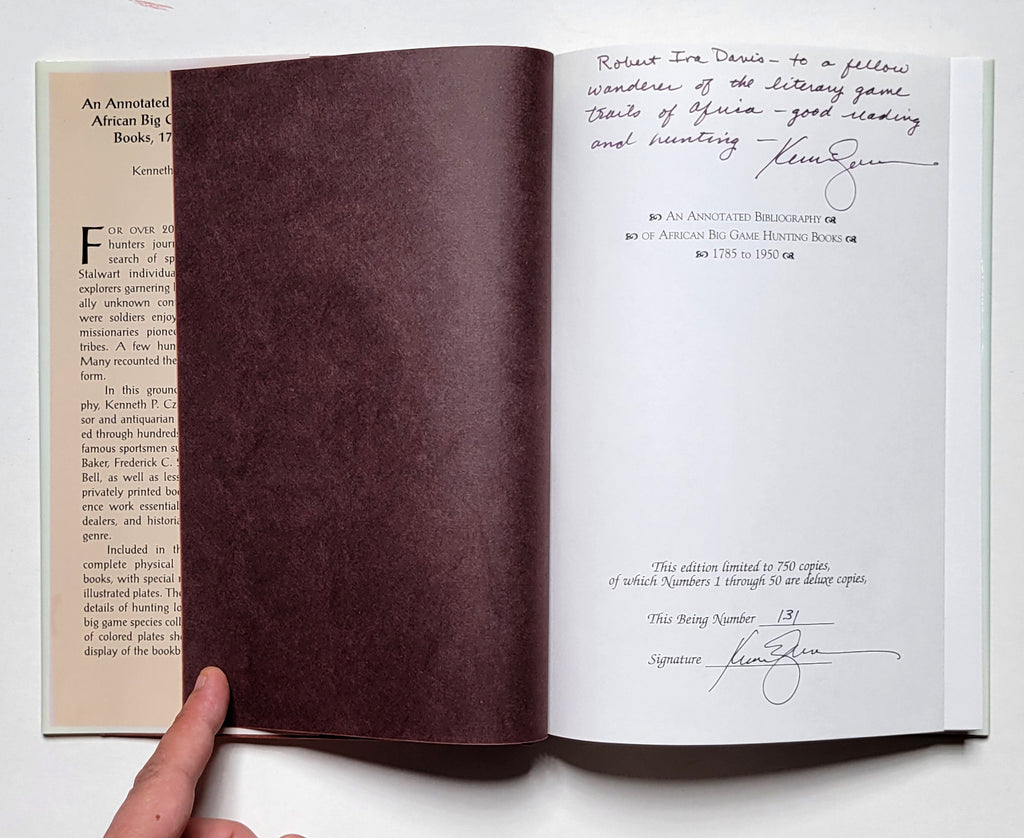 An Annotated
African Big G
Books, 17
Kenneth
FOR OVER 20
hunters jour
search of sp
Stalwart individua
explorers garnering
ally unknown con
were soldiers enjoy
missionaries pionee
tribes. A few hun
Many recounted the
form.
In this ground
phy, Kenneth P. Cz
sor and antiquarian
ed through hundreds
famous sportsmen su
Baker, Frederick C.
Bell, as well as less
privately printed boo
ence work essential
dealers, and historia
genre.
Included in th
complete physical
books, with special
illustrated plates. The
details of hunting lo
big game species coll
of colored plates sh
display of the bookb
Robert Ira Davis – to a fellow
wanderer of the literary game
trails of Africa – good reading
and hunting –
An Annotated Bibliography
of African Big Game Hunting Books
1785 to 1950
This edition limited to 750 copies,
of which Numbers 1 through 50 are deluxe copies,
This Being Number 131
Signature